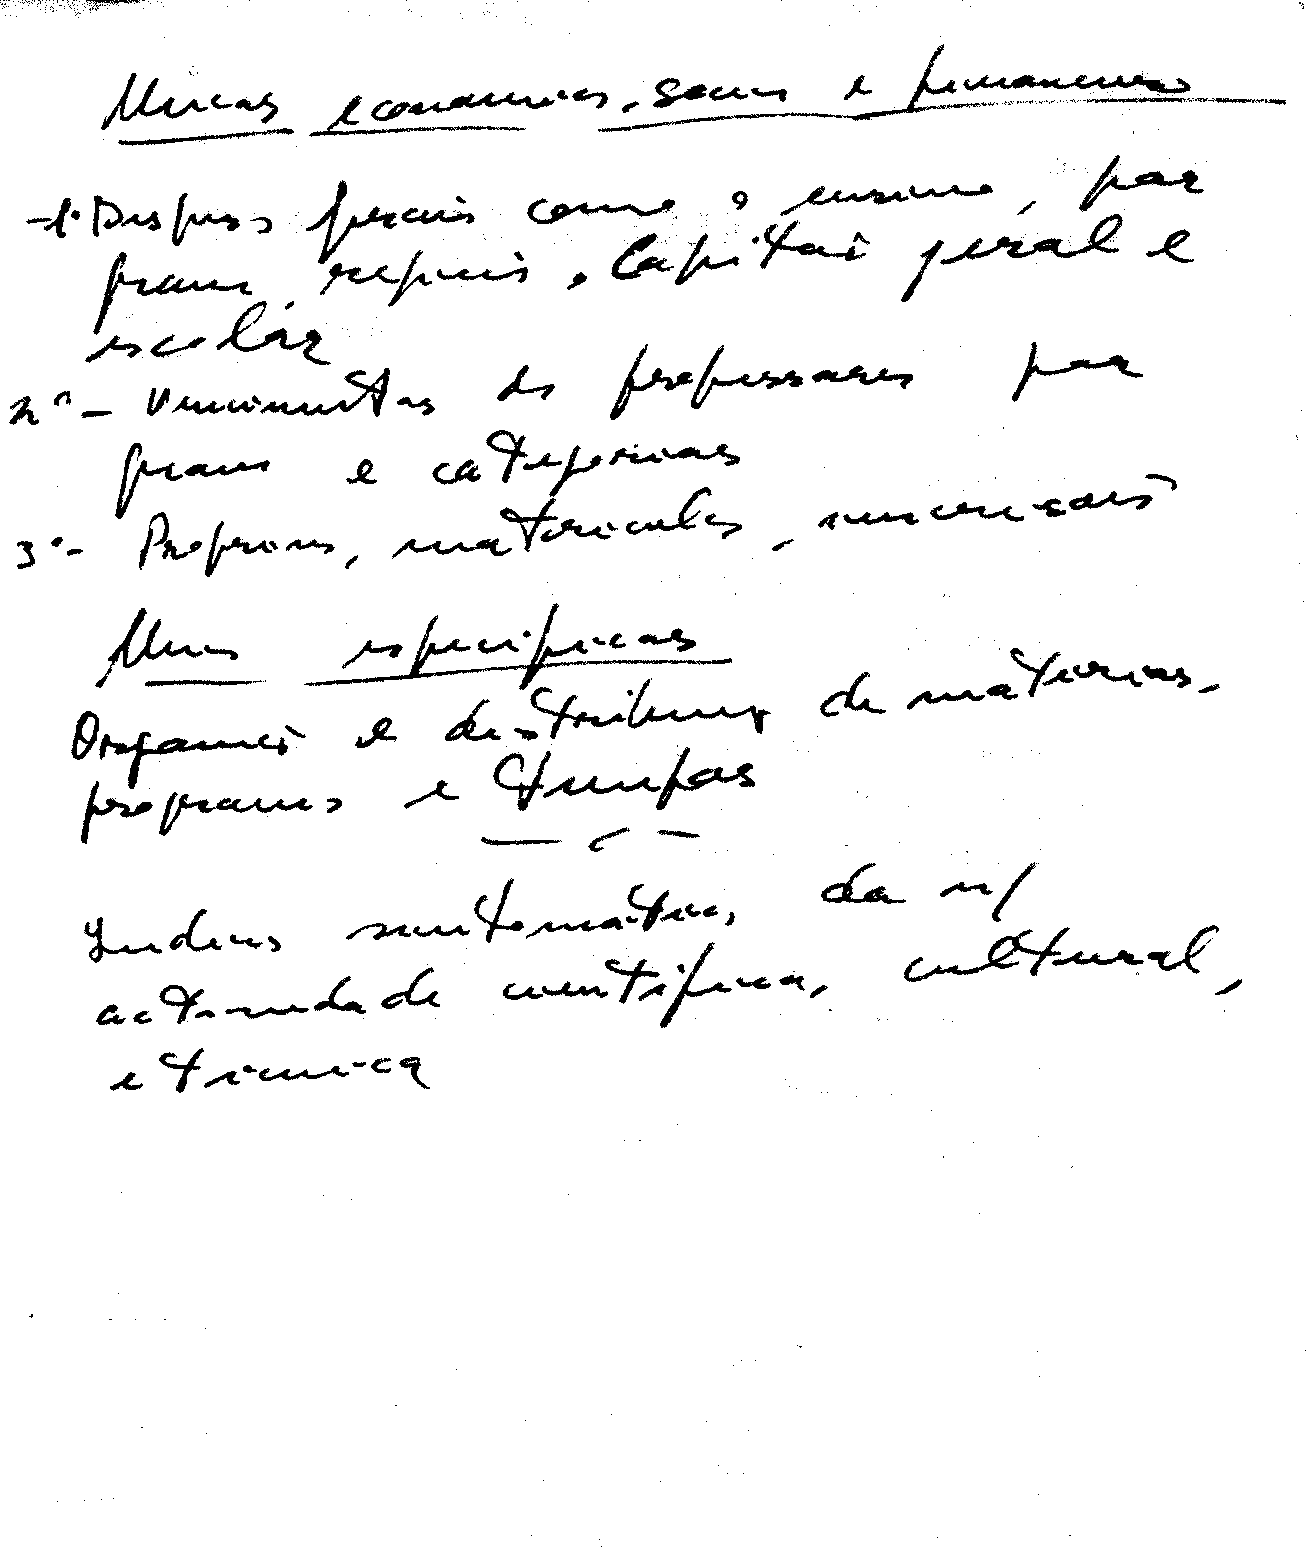 económicas, sociais e financeiras
-1º Despesas gerais com o ensino, por
graus, regiões. Capitais geral e
escolar
2º - Vencimentos dos professores por
graus e categorias
3º - Propinas, matriculas,
específicas
Organização e distribuição de matérias,
programas e tempos
Indices sintomáticos, da n/
actividade científica, cultural,
e técnica